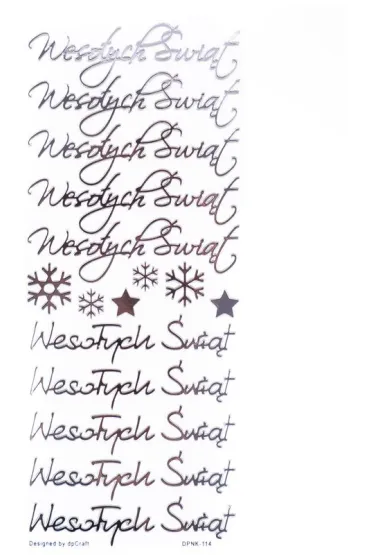 Wesołych Świąt
Wesołych Świąt
Wesołych Świąt
Wesołych Świąt
Wesołych Świąt
Wesołych Świąt
Wesołych Świąt
Wesołych Świąt
Wesołych Świąt
Wesołych Świąt
Designed by dpCraft DPNK-114